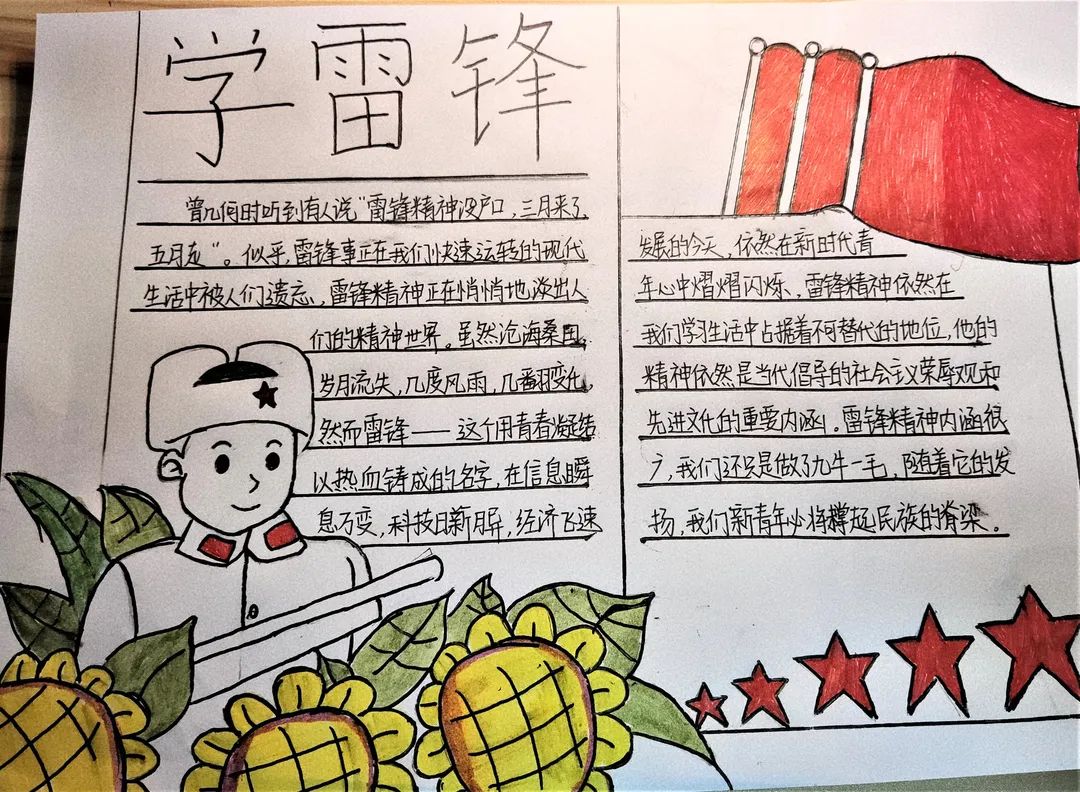 学雷锋
曾几何时听到有人说“雷锋精神没户口，三月来了
五月走”。似乎，雷锋事正在我们快速运转的现代
生活中被人们遗忘，雷锋精神正在悄悄地淡出人
们的精神世界。虽然沧海桑田，
岁月流失，几度风雨，几番变化，
然而雷锋——这个用青春凝结
以热血铸成的名字，在信息瞬
息万变，科技日新月异，经济飞速
发展的今天，依然在新时代青
年心中熠熠闪烁、雷锋精神依然在
我们学习生活中占据着不可替代的地位，他的
精神依然是当代倡导的社会主义荣辱观和
先进文化的重要内涵。雷锋精神内涵很
广，我们还只是做了九牛一毛，随着它的发
扬，我们新青年必将撑起民族的脊梁。